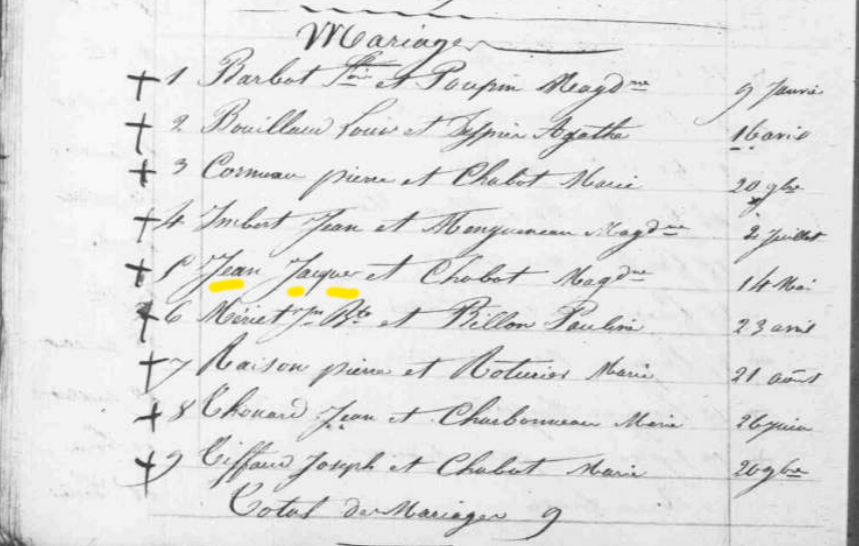 Mariages
1 Barbot Fois et Poupin Magdne 9 Janvier
2 Bouillaud Louis et Agathe 16 avril
3 Corneau pierre et Chabot Marie 20 9bre
4 Imbert Jean et Magdne 2 Juillet
5 Jean Jacques et Chabot Magdne 14 Mai
6 Meriet Jn Bte et Billon Pauline 23 avril
7 Raison pierre et Roturier Marie 21 août
8 Chouard Jean et Charbonneau Marie 26 juin
9 Tiffaud Joseph et Chabot Marie 20 9bre
Total des Mariages 9